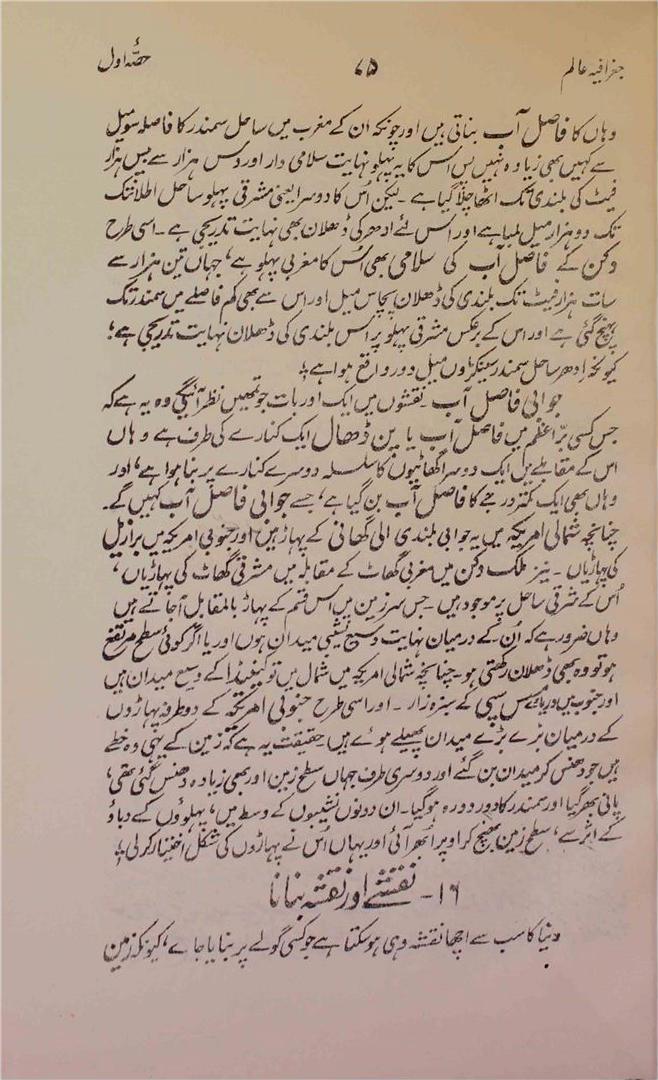 جغرافیہ عالم ۷۵ حصّہ اول
وہاں کا فاصل آب بناتی ہیں اور چونکہ ان کے مغرب میں ساحل سمندر کا فاصلہ سو میل
سے کہیں بھی زیادہ نہیں پس اس کا یہ پہلو نہایت سلامی دار اور دس ہزار سے بیس ہزار
فیٹ کی بلندی تک اٹھا چلا گیا ہے ۔ لیکن اُس کا دوسرا یعنی مشرقی پہلو ساحل اطلانتک
تک دو ہزار میل لمبا ہے اور اس لئے ادھر کی ڈھلان بھی نہایت تدریجی ہے ۔ اسی طرح
دکن کے فاصل آب کی سلامی بھی اُس کا مغربی پہلو ہے، جہاں تین ہزار سے
سات ہزار فیٹ تک بلندی کی ڈھلان پچاس میل اور اس سے بھی کم فاصلے میں سمندر تک
پہنچ گئی ہے اور اس کے برعکس مشرقی پہلو پر اس بلندی کی ڈھلان نہایت تدریجی ہے؛
کیونکہ اِدھر ساحل سمندر سینکڑوں میل دور واقع ہوا ہے؛
جوابی فاصل آب ۔ نقشوں میں ایک اور بات جو تمھیں نظر آئیگی وہ یہ ہے کہ
جس کسی برّ اعظم میں فاصل آب یا پن ڈھال ایک کنارے کی طرف ہے وہاں
اس کے مقابلے میں ایک دوسرا گھاٹیوں کا سلسلہ دوسرے کنارے پر بنا ہوا ہے، اور
وہاں بھی ایک کمتر درجے کا فاصل آب بن گیا ہے، جسے جوابی فاصل آب کہیں گے۔
چنانچہ شمالی امریکہ میں یہ جوابی بلندی الی گھانی کے پہاڑ ہیں اور جنوبی امریکہ میں برازیل
کی پہاڑیاں ۔ نیز ملک دکن میں مغربی گھاٹ کے مقابلہ میں مشرقی گھاٹ کی پہاڑیاں،
اُس کے شرقی ساحل پر موجود ہیں ۔ جس سرزمین میں اس قسم کے پہاڑ بالمقابل آ جاتے ہیں
وہاں ضرور ہے کہ اُن کے درمیان نہایت وسیع نشیبی میدان ہوں اور یا اگر کوئی سطح مرتفع
ہو تو وہ بھی ڈھلان رکھتی ہو۔ چنانچہ شمالی امریکہ میں شمال میں تو کینیڈا کے وسیع میدان ہیں
اور جنوب میں دریائے مس سپی کے سبزہ زار ۔ اور اسی طرح جنوبی امریکہ کے دو طرفہ پہاڑوں
کے درمیان بڑے بڑے میدان پھیلے ہوئے ہیں حقیقت یہ ہے کہ زمین کے یہی وہ خطے
ہیں جو دھنس کر میدان بن گئے اور دوسری طرف جہاں سطح زمین اور بھی زیادہ دھنس گئی تھی،
پانی بھر گیا اور سمندر کا دور دورہ ہوگیا۔ ان دونوں نشیبوں کے وسط میں، پہلوؤں کے دباؤ
کے اثر سے، سطح زمین بھنچ کر اوپر اُبھر آئی اور یہاں اُس نے پہاڑوں کی شکل اختیار کر لی؛
۱۶۔ نقشے اور نقشہ بنانا
دنیا کا سب سے اچھا نقشہ وہی ہو سکتا ہے جو کسی گولے پر بنایا جائے، کیونکہ زمین